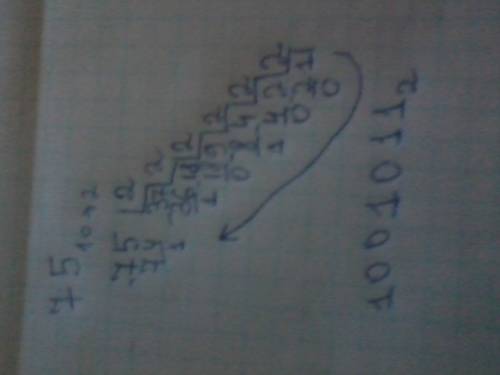 75₁₀→₂
75 | 2
74 | 37 | 2
1 | 36 | 18 | 2
1 | 18 | 9 | 2
0 | 8 | 4 | 2
1 | 4 | 2 | 2
0 | 2 | 1
0
1001011₂